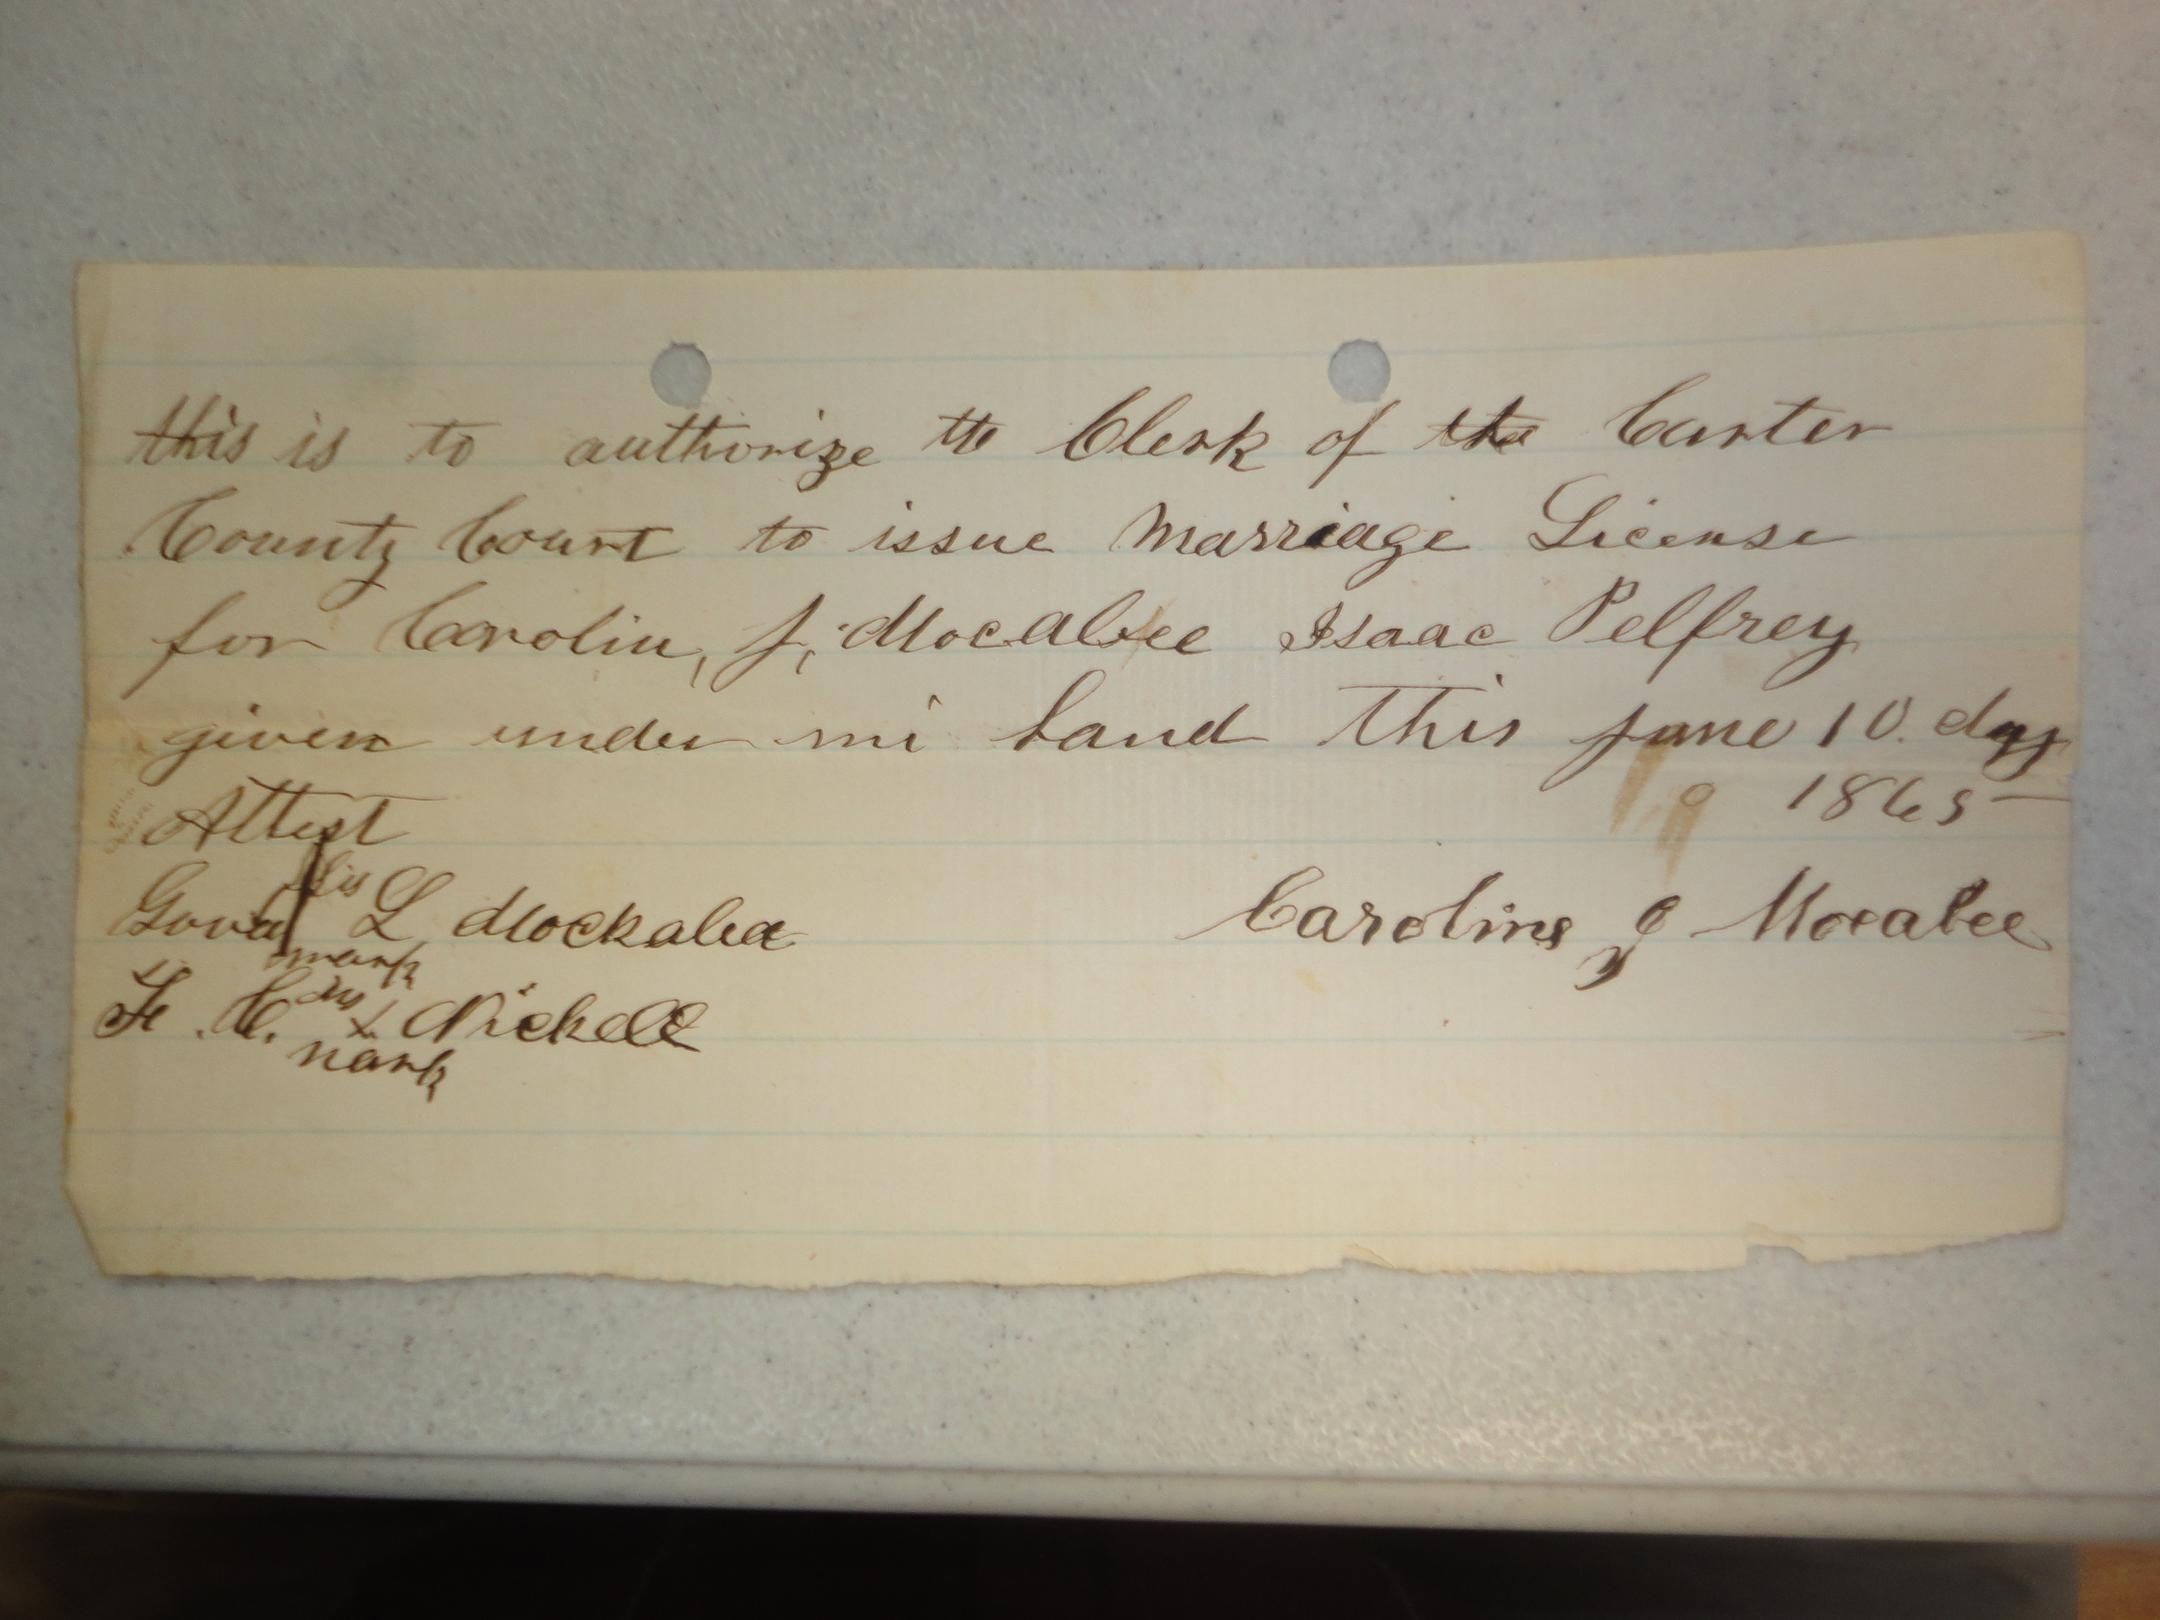 this is to authorize the Clerk of the Carter
County Court to issue Marriage License
for Carolin, J, Mocabee Isaac Pelfrey
given under mi hand this June 10. day
1865
Attest
his
L Mockabee
mark
Caroline J Mocabee
his
F. C. X Nickell
mark